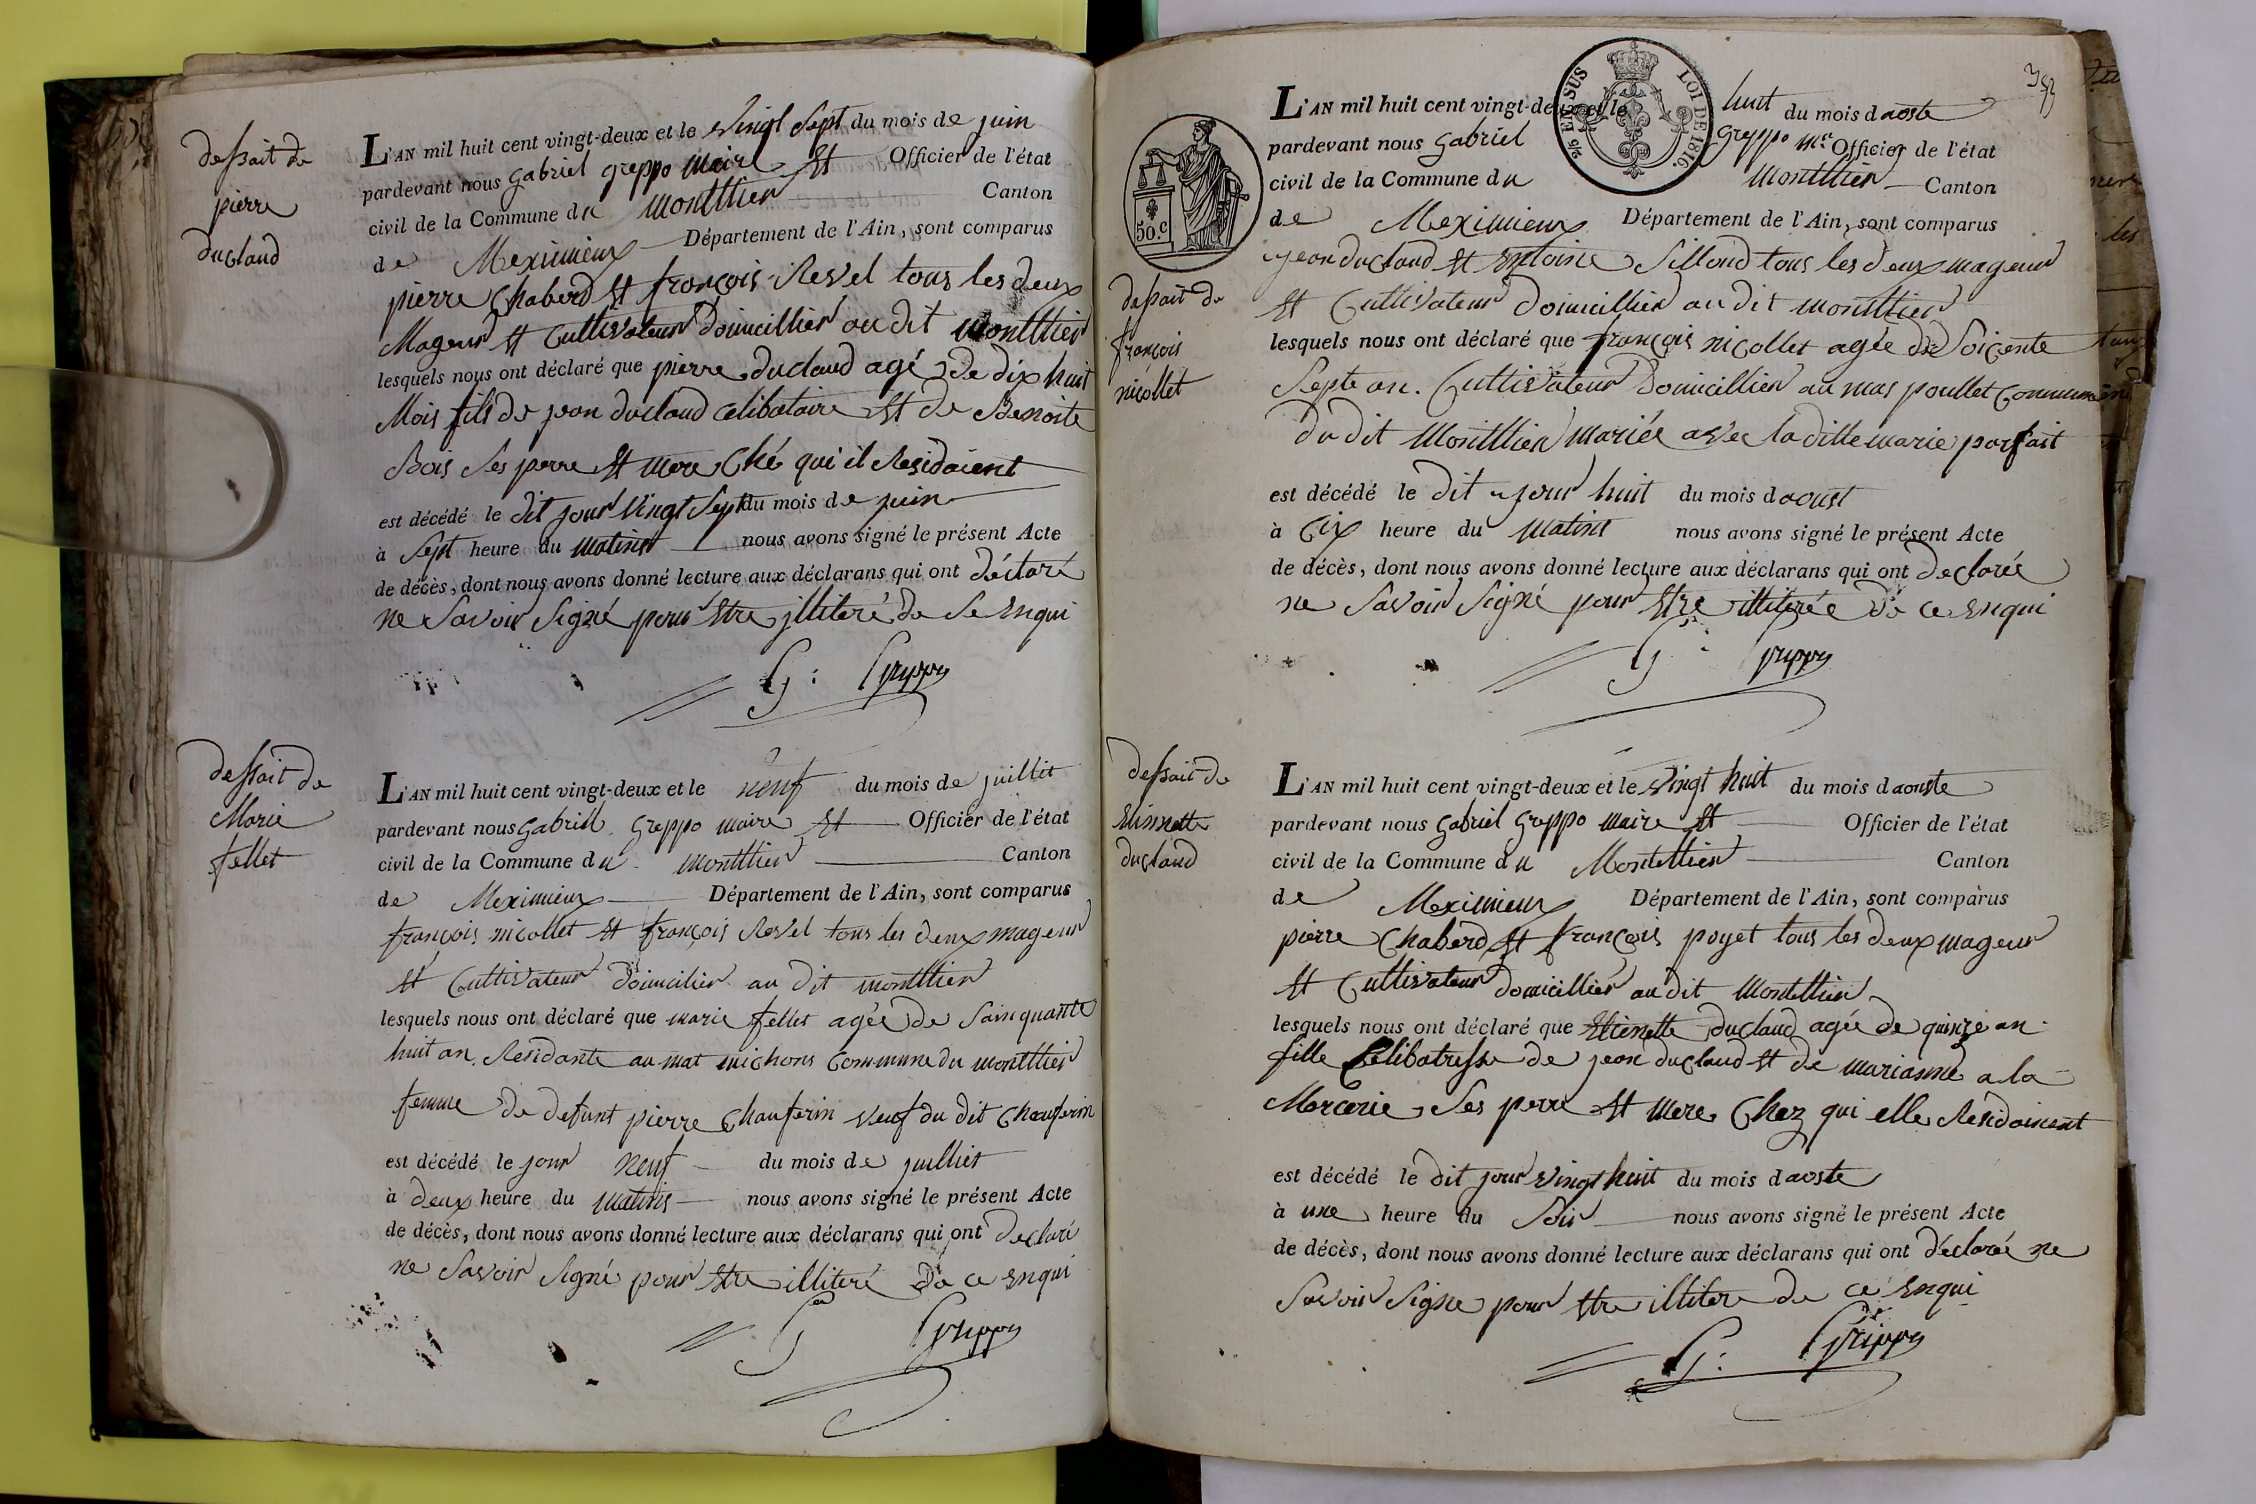 dessait de
pierre
duclaud
L'AN mil huit cent vingt-deux et le vingt sept du mois de juin
pardevant nous gabriel greppo maire et Officier de l'état
civil de la Commune du montllier Canton
de Meximieux Département de l'Ain, sont comparus
pierre Chaberd et françois Revel tous les deux
Mageur et Cultivateur domicillier au dit montllier
lesquels nous ont déclaré que pierre duclaud agé de dix huit
Mois fils de jean duclaud célibataire et de Benoite
Bois ses perre et mere Ché qui il Residaient
est décédé le dit jour vingt sept du mois de juin
à sept heure du matins nous avons signé le présent Acte
de décès, dont nous avons donné lecture aux déclarans qui ont déclaré
ne savoir signé pour etre jlliteré de se enqui
G: Greppo
dessait de
Marie
fellet
L'AN mil huit cent vingt-deux et le neuf du mois de juillet
pardevant nous gabriel greppo maire et Officier de l'état
civil de la Commune du montllier Canton
de Meximieux Département de l'Ain, sont comparus
françois nicollet et françois Revel tous les deux mageur
et Cultivateur domicilier au dit montllier
lesquels nous ont déclaré que marie fellet agée de sainquante
huit an Residante au mat michons Commune du montllier
femme de defunt pierre Chauferin veuf du dit Chauferin
est décédé le jour neuf du mois de juilliet
à deux heure du matins nous avons signé le présent Acte
de décès, dont nous avons donné lecture aux déclarans qui ont declaré
ne savoir signé pour etre illiteré de ce enqui
G Greppo
353
EN SUS LOI DE 1816.
50.c
L'AN mil huit cent vingt-deux et le huit du mois daoste
pardevant nous gabriel greppo mre Officier de l'état
civil de la Commune du montllier Canton
de Meximieux Département de l'Ain, sont comparus
dessait de
françois
nicollet
jean duclaud et entoine sillond tous les deux mageur
et Cultivateur domicillier au dit montllier
lesquels nous ont déclaré que françois nicollet agée de soicente
septe an. Cultivateur domicillier au mas poullet Commune
du dit montllier mariée avec la ditte marie parfait
est décédé le dit jour huit du mois daoust
à Cix heure du matins nous avons signé le présent Acte
de décès, dont nous avons donné lecture aux déclarans qui ont declarée
ne savoir signé pour etre illiterée de ce enqui
G: Greppo
dessait de
Etiennette
duclaud
L'AN mil huit cent vingt-deux et le vingt huit du mois daouste
pardevant nous gabriel greppo maire et Officier de l'état
civil de la Commune du Montellier Canton
de Meximieux Département de l'Ain, sont comparus
pierre Chaberd et françois poyet tous les deux mageur
et Cultivateur domicillier au dit Montellier
lesquels nous ont déclaré que Etienette duclaud agée de quinze an
fille Celibatresse de jean duclaud et de marianne a la
Mercerie ses perre et mere Chez qui elle Residoinent
est décédé le dit jour vingt huit du mois daoste
à une heure du soir nous avons signé le présent Acte
de décès, dont nous avons donné lecture aux déclarans qui ont déclarée ne
savoir signe pour etre illitere de ce enqui
G: Greppo